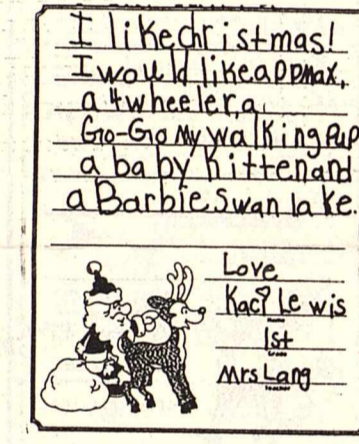 I like christmas!
I would like a ppmax,
a 4 wheeler, a
Go-Go My walking pup
a baby kitten and
a Barbie Swan lake.
Love
Kaci Lewis
Name
1st
Grade
Mrs Lang
Teacher